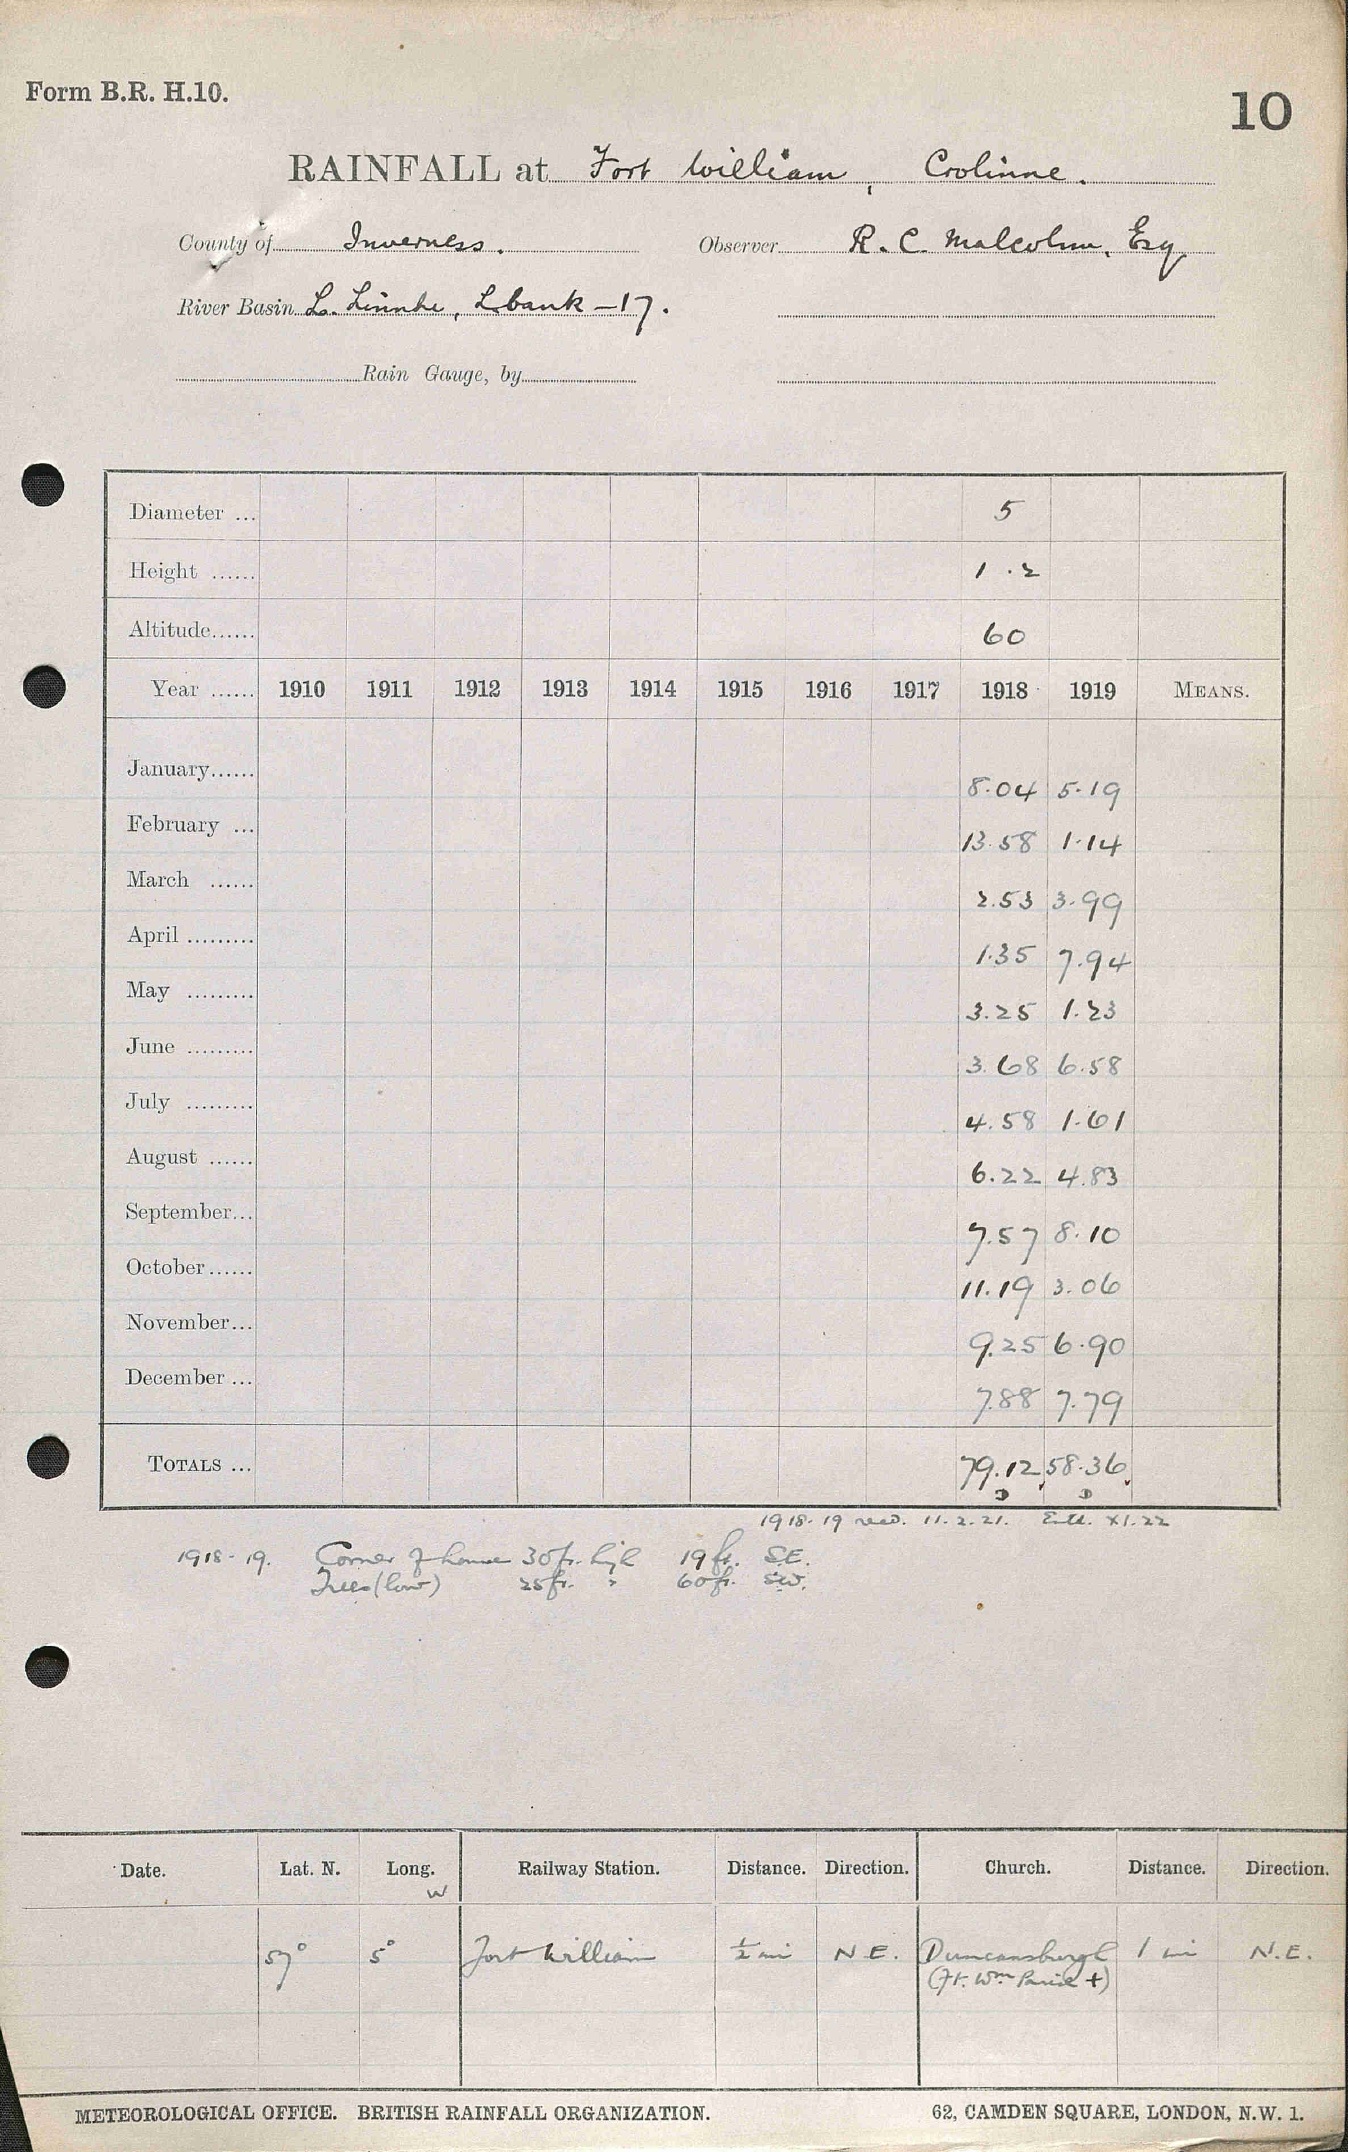 Form B.R. H.10.
10
RAINFALL at Fort William, Crolinne.
County of Inverness. Observer R. C. Malcolm, Esq
River Basin L. Linnhe, L bank – 17.
Rain Gauge, by
Diameter ... 5
Height ...... 1.2
Altitude...... 60
Year ...... 1910 1911 1912 1913 1914 1915 1916 1917 1918 1919 MEANS.
January...... 8.04 5.19
February ... 13.58 1.14
March ...... 2.53 3.99
April ......... 1.35 7.94
May ......... 3.25 1.23
June ......... 3.68 6.58
July ......... 4.58 1.61
August ...... 6.22 4.83
September... 7.57 8.10
October...... 11.19 3.06
November... 9.25 6.90
December ... 7.88 7.79
TOTALS ... 79.12 58.36
1918-19 recd. 11.2.21. Entd. XI.22
1918-19. Corner of house 30ft. high 19ft. S.E.
Trees (low) 25ft. " 60ft. SW.
Date. Lat. N. Long. Railway Station. Distance. Direction. Church. Distance. Direction.
W
57° 5° Fort William ½ mi N.E. Duncansburgh 1 mi N.E.
(Ft. Wm Parish +)
METEOROLOGICAL OFFICE. BRITISH RAINFALL ORGANIZATION. 62, CAMDEN SQUARE, LONDON, N.W. 1.